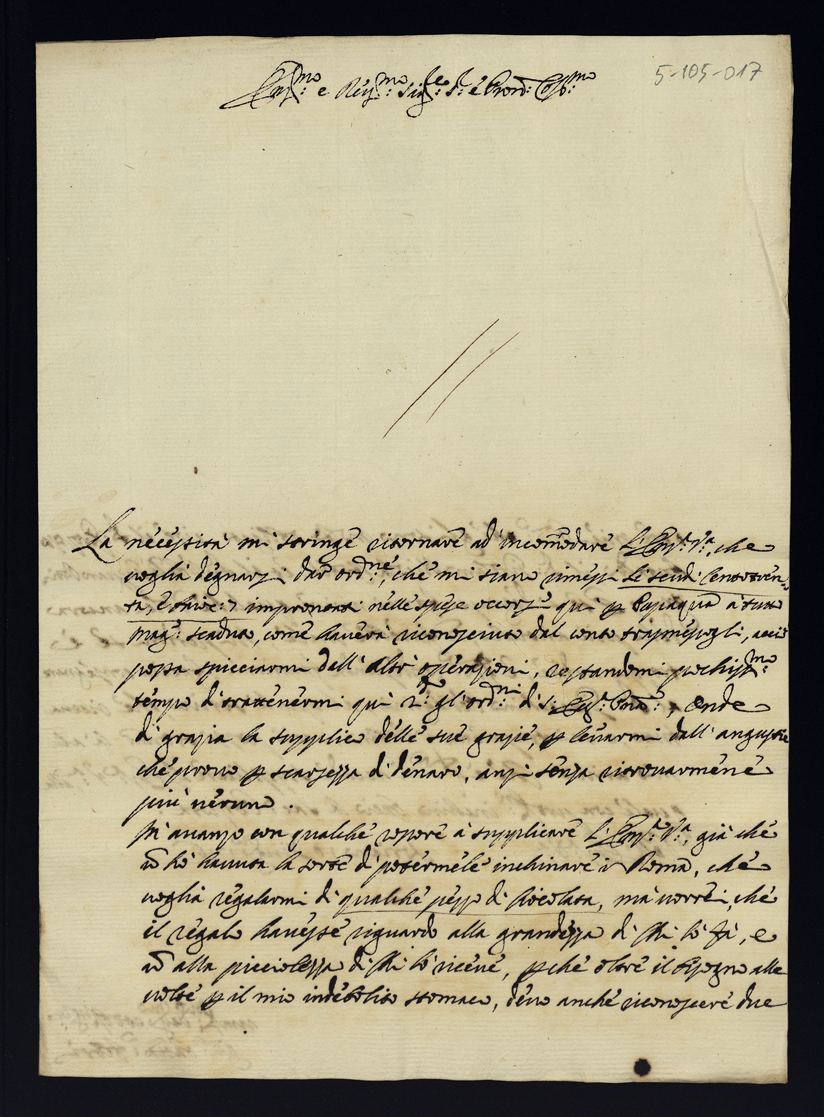 5-105-017
Em:mo e Rev:mo Sig:re S:r e Pron: Col:mo
La necessità mi stringe ritornare ad' incomodare l'Em:a V:a, che
voglia degnarsi dar ord:ne, che mi siano rimessi li scudi Cento
improntati nelle spese occorse qui p a tutto
Mag:o scaduto, come haverà riconosciuto dal conto trasmessogli, acciò
possa spicciarmi dall' altre operazioni, restandomi pochiss:mo
tempo di trattenermi qui gl'ord:ni di S: onde
di grazia la supplico delle sue grazie, p levarmi dall' angustie
che provo p scarsezza di denaro, anzi senza ritrovarmene
più nerun.
M'avanzo con qualche rossore à supplicare l'Em:a V:a, già che
ho havuta la sorte di potermele inchinare in Roma, che
voglia regalarmi di qualche pezzo di Ciocolata, ma vorrei, che
il regalo havesse riguardo alla grandezza di chi lo fà, e
alla picciolezza di chi lo riceve, p che oltre il bisogno alle
volte p il mio indebolito stomaco, devo anche riconoscere due